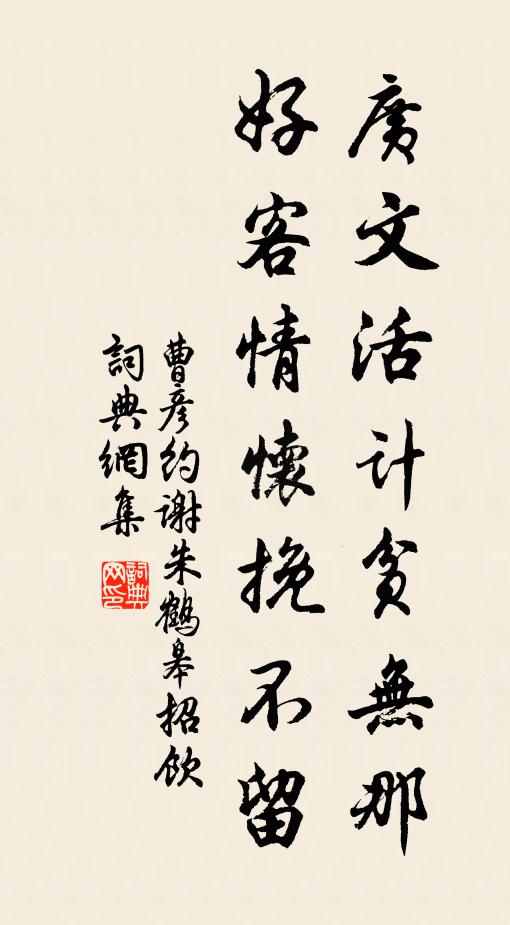 廣文活計貧無那
好客情懷挽不留
曹彥約謝朱鶴皋招飲
詞典網集
詞典网印